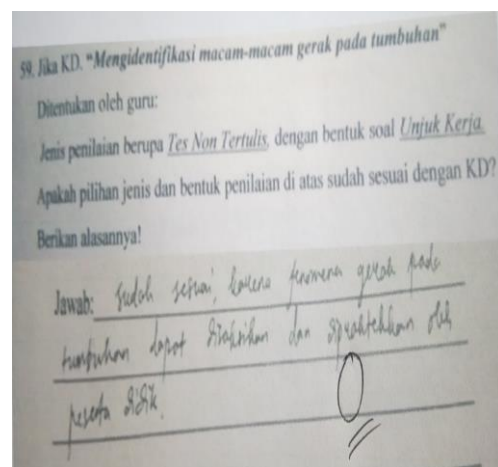 59. Jika KD. "Mengidentifikasi macam-macam gerak pada tumbuhan"
Ditentukan oleh guru:
Jenis penilaian berupa Tes Non Tertulis, dengan bentuk soal Unjuk Kerja.
Apakah pilihan jenis dan bentuk penilaian di atas sudah sesuai dengan KD?
Berikan alasannya!
Jawab: Sudah sesuai, karena fenomena gerak pada
tumbuhan dapat dan dipraktekkan oleh
peserta didik.
0